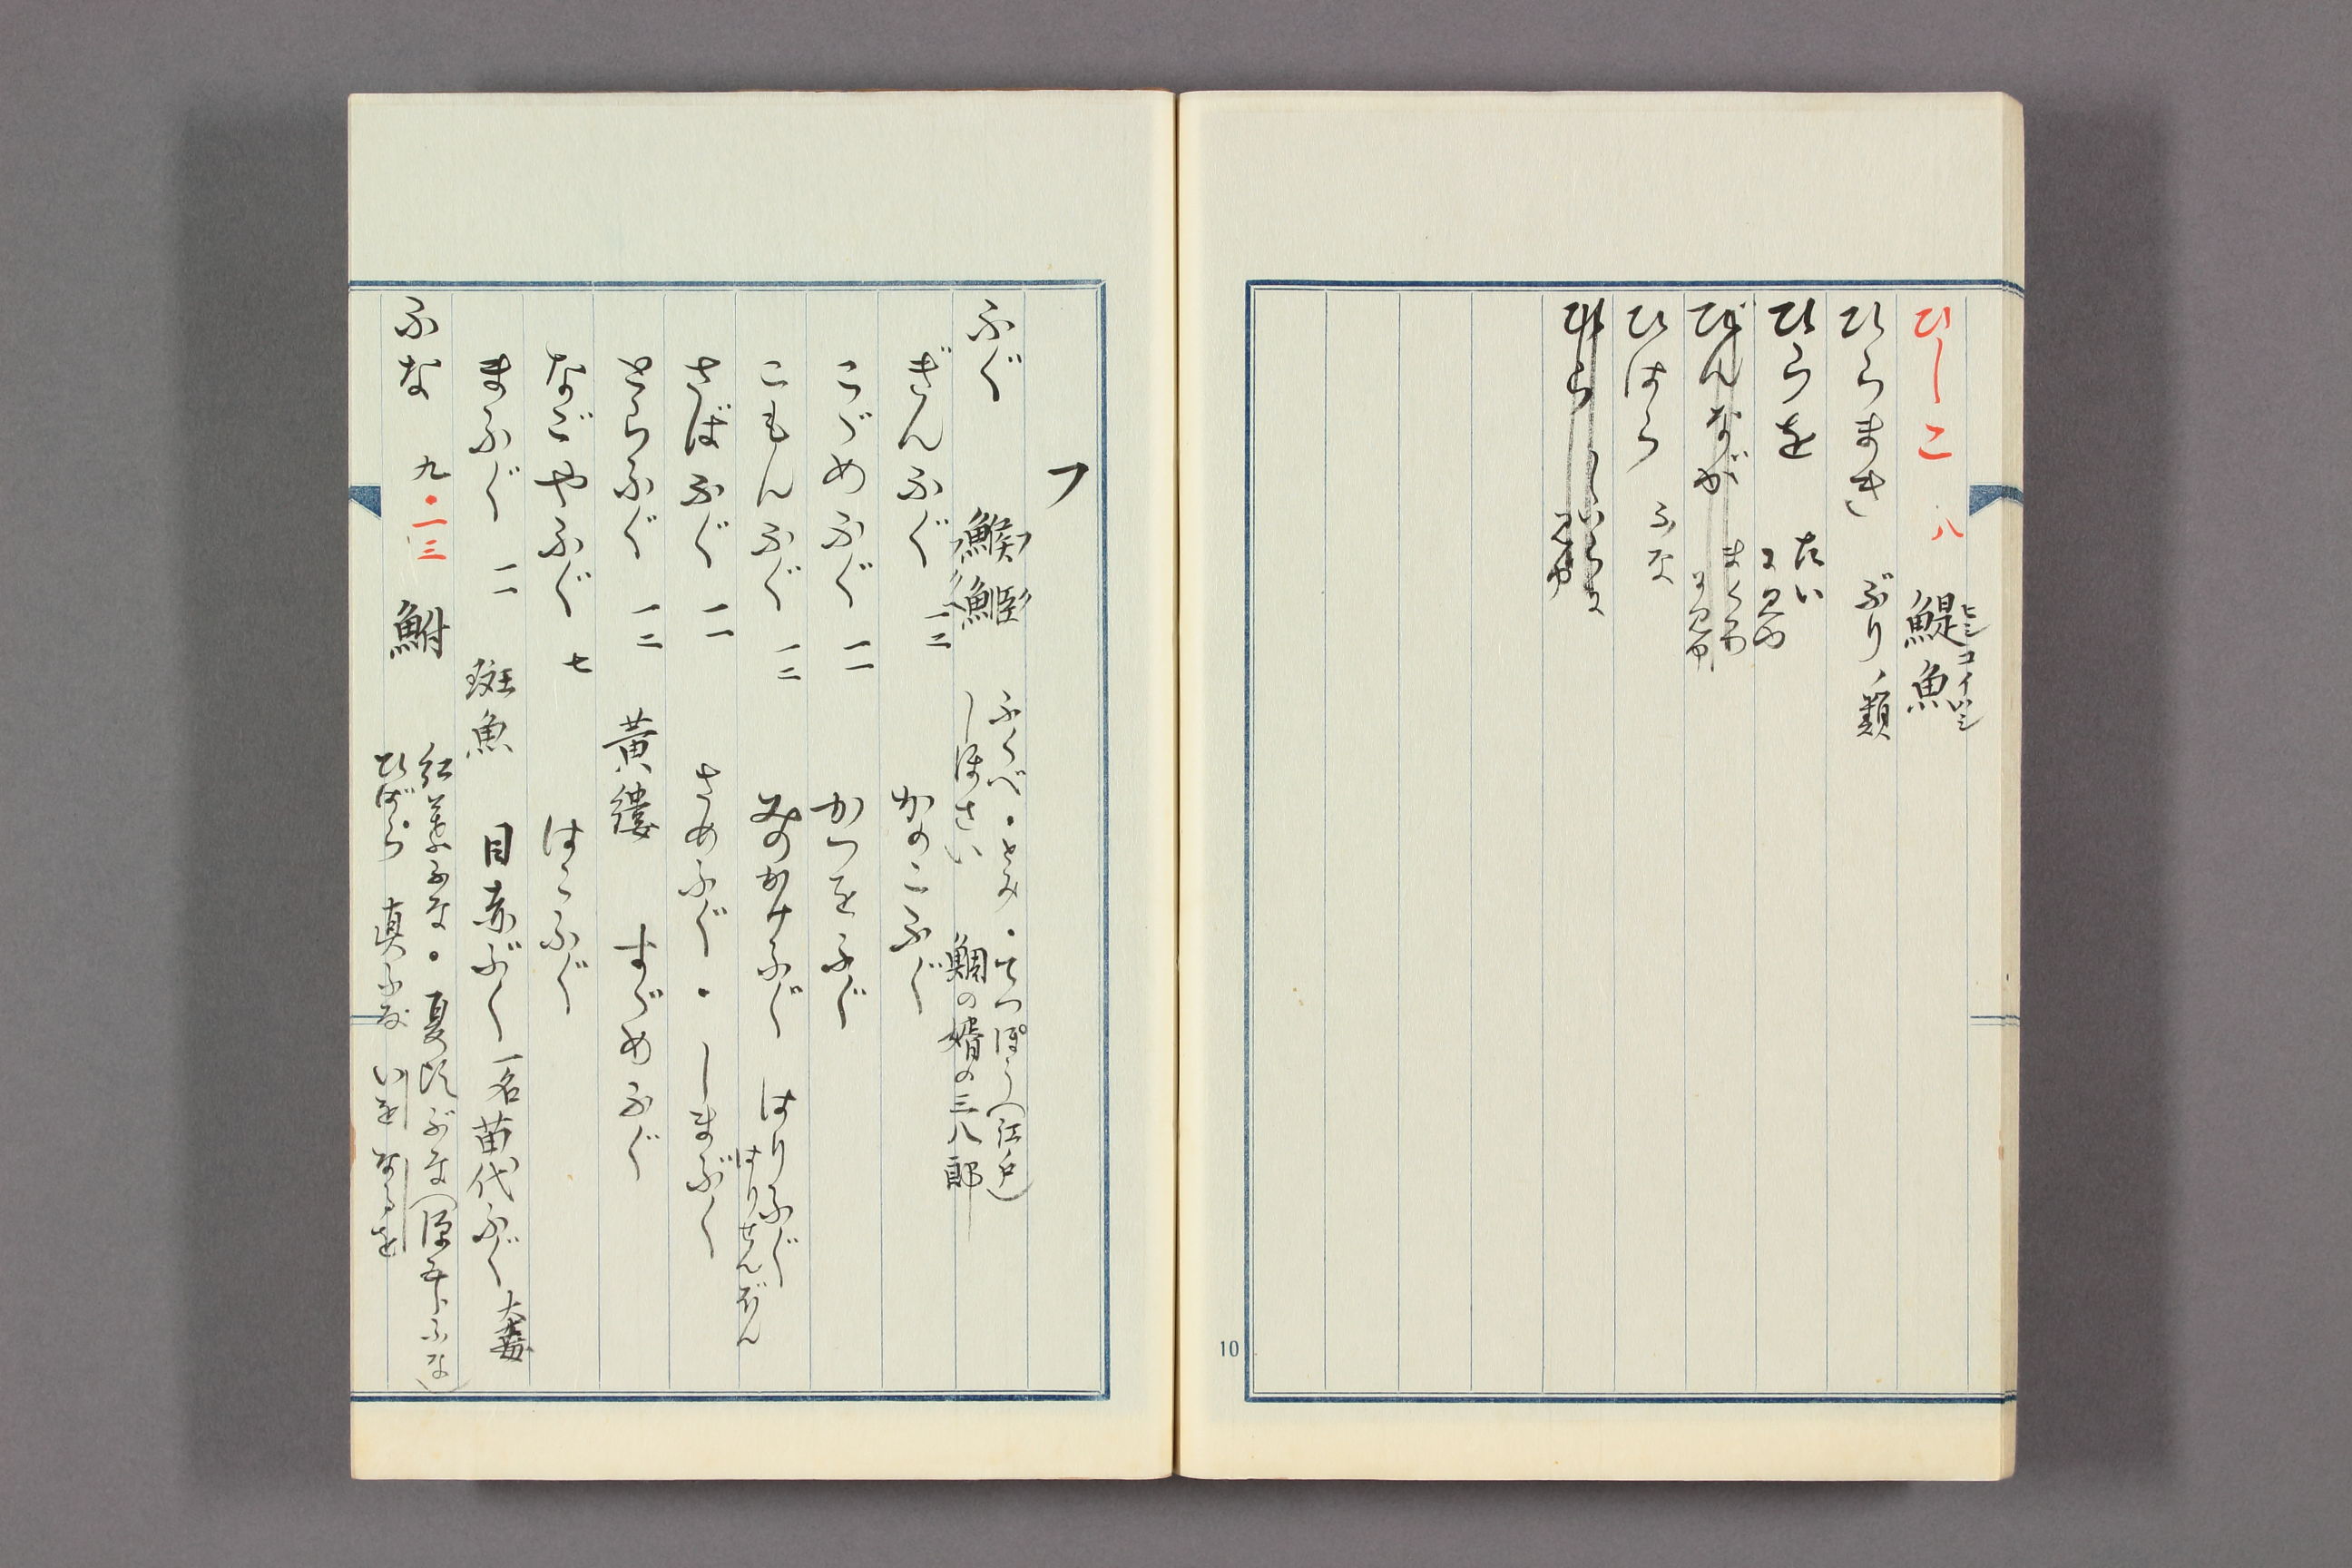 ひしこ 八 鯷魚 ヒシコイワシ
ひらまさ ぶりノ類
ひらを たい
に見ゆ
びんなが まぐろ
に見ゆ
ひはら ふな
ひら
に見ゆ
10
フ
ふぐ
ふくべ・とみ・てつぽう(江戸)
しほさい 鯛の婿の三八郎
ぎんふぐ 一二 かのこふぐ
こゞめふぐ 一一 かつをふぐ
こもんふぐ 一二 みのかけふぐ はりふぐ
はりせんぼん
さばふぐ 一一 さめふぐ・しまぶく
とらふぐ 一二 黄縷 すゞめふぐ
なごやふぐ 七 はこふぐ
まふぐ 一一 斑魚 目赤ぶく 一名苗代ふぐ 大毒
ふな 九・一三 鮒
紅葉ふな・夏頃ぶな(源五郎ふな)
ひばら 真ふな